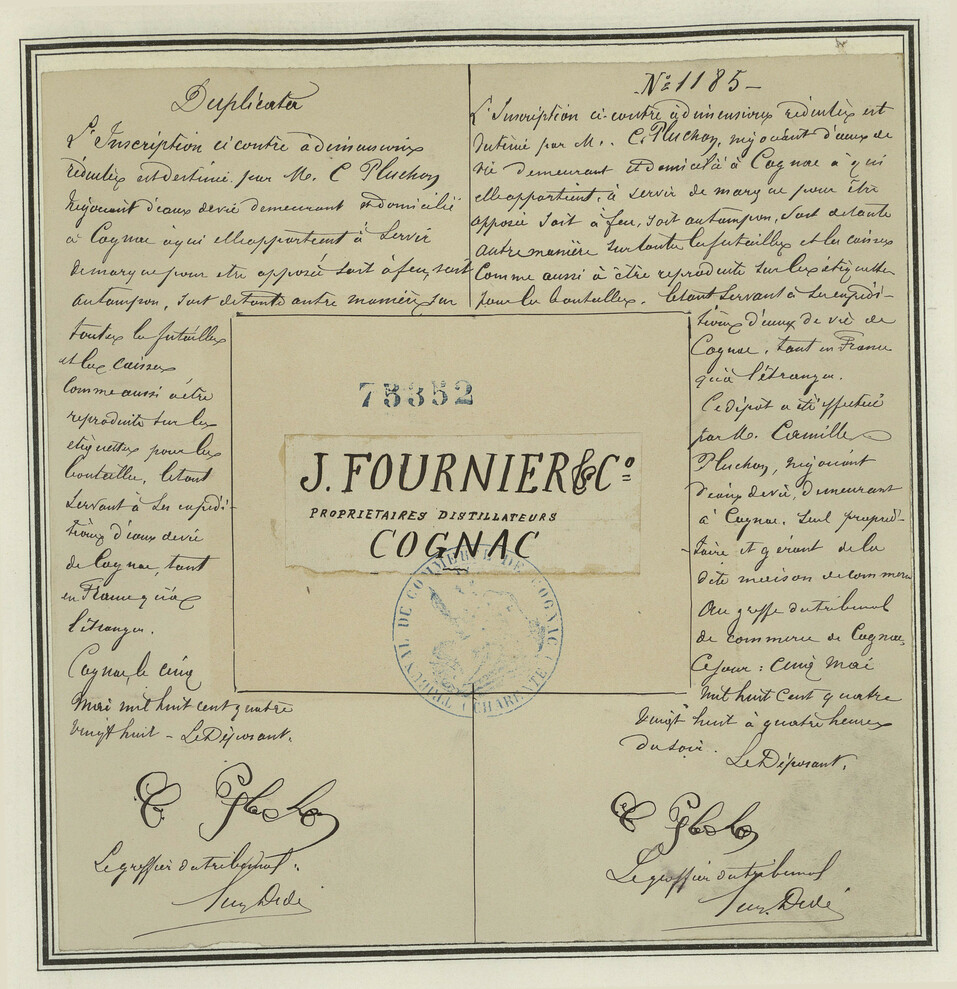 Duplicata
L'Inscription ci contre à dimensions
réduites est destinée par M. C Pluchon
Négociant d'eaux de vie demeurant et domicilié
à Cognac à qui elle appartient à Servir
de marque pour etre apposée soit à feu, soit
au tampon, soit de toute autre manière sur
toutes les futailles
et les caisses
Comme aussi à être
reproduite sur les
étiquettes pour les
bouteilles, le tout
servant à ses expédi-
tions d'eaux de vie
de Cognac, tant
en France qu'à
l'étranger.
Cognac, le cinq
Mai mil huit cent quatre
vingt huit - Le Déposant.
C Pluchon
Le greffier du tribunal.
No 1185 -
L'Inscription ci-contre à dimensions réduites est
destinée par M. C. Pluchon, négociant d'eaux de
vie demeurant et domicilié à Cognac à qui
elle appartient, à servir de marque pour être
apposée soit à feu, soit au tampon, soit de toute
autre manière sur toutes les futailles et les caisses
Comme aussi à être reproduite sur les étiquettes
pour les bouteilles. le tout servant à ses expédi-
tions d'eaux de vie de
Cognac, tant en France
qu'à l'étranger.
Ce dépôt a été effectué
par M. Camille
Pluchon, négociant
d'eaux de vie, demeurant
à Cognac, seul proprié-
taire et gérant de la
dite maison de commerce
Au greffe du tribunal
de commerce de Cognac,
Ce jour : Cinq Mai
mil huit cent quatre
vingt huit à quatre heures
du soir.
Le Déposant,
C Pluchon
Le greffier du tribunal
75352
J. FOURNIER & Co
PROPRIETAIRES DISTILLATEURS
COGNAC
TRIBUNAL DE COMMERCE DE COGNAC (CHARENTE)